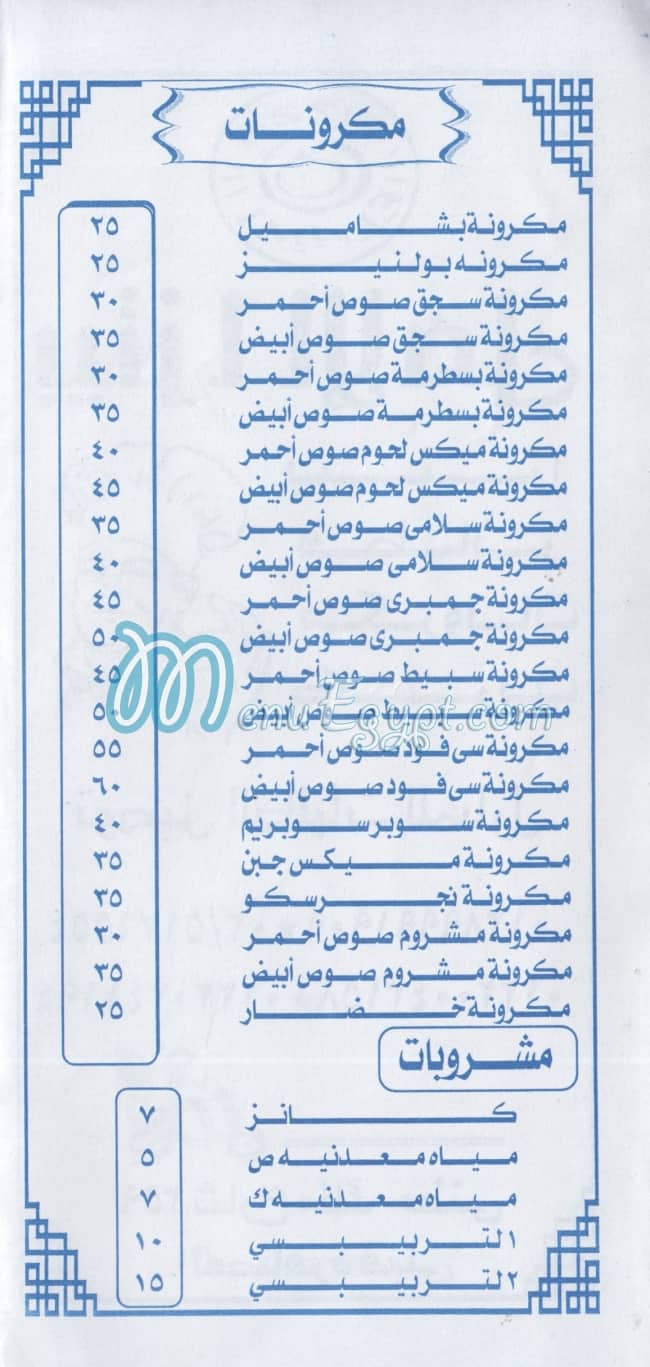 مكرونات
مكرونة بشاميل ٢٥
مكرونه بولنيز ٢٥
مكرونة سجق صوص أحمر ٣٠
مكرونة سجق صوص أبيض ٣٥
مكرونة بسطرمة صوص أحمر ٣٠
مكرونة بسطرمة صوص أبيض ٣٥
مكرونة ميكس لحوم صوص أحمر ٤٠
مكرونة ميكس لحوم صوص أبيض ٤٥
مكرونة سلامى صوص أحمر ٣٥
مكرونة سلامى صوص أبيض ٤٠
مكرونة جمبرى صوص أحمر ٤٥
مكرونة جمبرى صوص أبيض ٥٠
مكرونة سبيط صوص أحمر ٤٥
مكرونة سبيط صوص أبيض ٥٠
MenuEgypt.com
مكرونة سى فود صوص أحمر ٥٥
مكرونة سى فود صوص أبيض ٦٠
مكرونة سوبر سوبريم ٤٠
مكرونة ميكس جبن ٣٥
مكرونة نجرسكو ٣٥
مكرونة مشروم صوص أحمر ٣٠
مكرونة مشروم صوص أبيض ٣٥
مكرونة خضار ٢٥
مشروبات
كانز ٧
مياه معدنيه ص ٥
مياه معدنيه ك ٧
١ لتر بيبسي ١٠
٢ لتر بيبسي ١٥